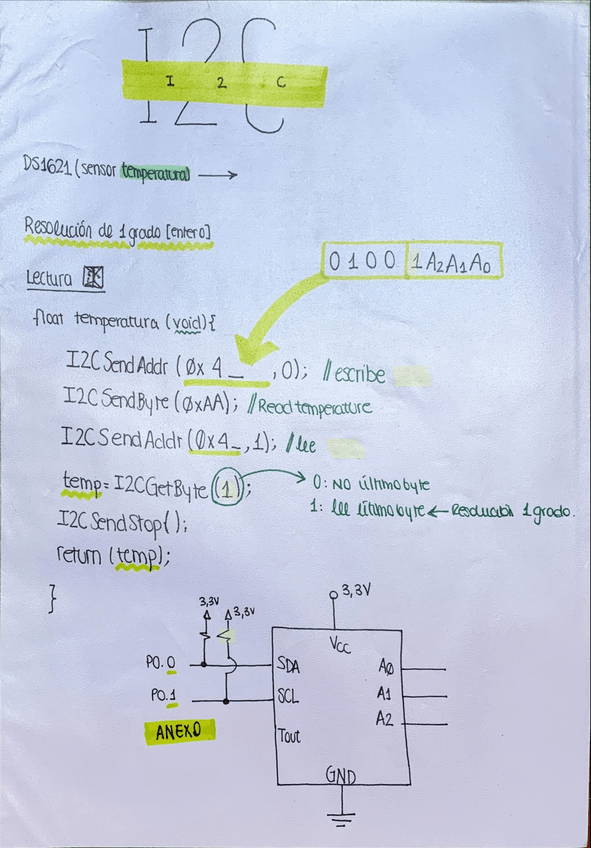 I2C
I 2 C
DS1621 (sensor temperatura) →
Resolución de 1 grado [entero]
0 1 0 0 1 A2 A1 A0
Lectura
float temperatura (void) {
I2CSendAddr (0x 4_ , 0); //escribe
I2CSendByte (0xAA); //Read temperature
I2CSendAddr (0x4_, 1); //lee
temp = I2CGetByte (1); → 0: NO último byte
1: lee último byte ← Resolución 1 grado.
I2CSendStop();
return (temp);
}
3,3V 3,3V 3,3V
Vcc
P0.0 SDA A0
P0.1 SCL A1
A2
ANEXO Tout
GND